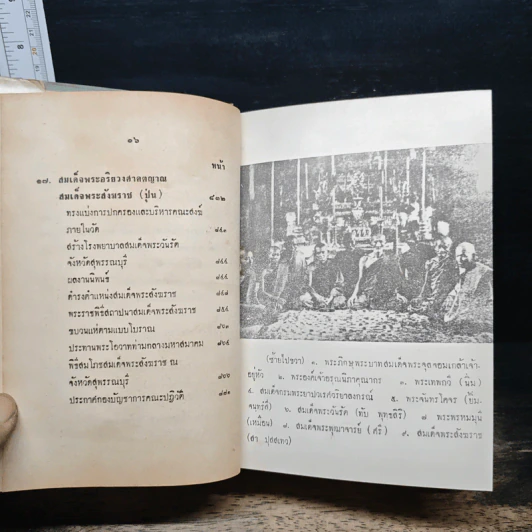 ๑๖
หน้า
๑๗. สมเด็จพระอริยวงศาคตญาณ
สมเด็จพระสังฆราช (ปุ่น) ๘๓๒
ทรงแบ่งการปกครองและบริหารคณะสงฆ์
ภายในวัด ๘๔๑
สร้างโรงพยาบาลสมเด็จพระวันรัต
จังหวัดสุพรรณบุรี ๘๔๔
ผลงานนิพนธ์ ๘๔๔
ดำรงตำแหน่งสมเด็จพระสังฆราช ๘๔๘
พระราชพิธีสถาปนาสมเด็จพระสังฆราช ๘๕๘
ขบวนแห่ตามแบบโบราณ ๘๖๑
ประทานพระโอวาทท่ามกลางมหาสมาคม ๘๖๔
พิธีสมโภชสมเด็จพระสังฆราช ณ
จังหวัดสุพรรณบุรี ๘๗๐
ประกาศกองบัญชาการคณะปฏิวัติ ๘๗๑
(ซ้ายไปขวา) ๑. พระภิกษุพระบาทสมเด็จพระจุลจอมเกล้าเจ้า-
อยู่หัว ๒. พระองค์เจ้าอรุณนิภาคุณากร ๓. พระเทพกวี (นิ่ม)
๔. สมเด็จกรมพระยาปวเรศวริยาลงกรณ์ ๕. พระจันทรโคจร (ยิ้ม
จนฺทรํสี) ๖. สมเด็จพระวันรัต (ทับ พุทฺธสิริ) ๗ พระพรหมมุนี
(เหมือน) ๘. สมเด็จพระพุฒาจารย์ (ศรี) ๙. สมเด็จพระสังฆราช
(สา ปุสฺสเทว)
8
9
20